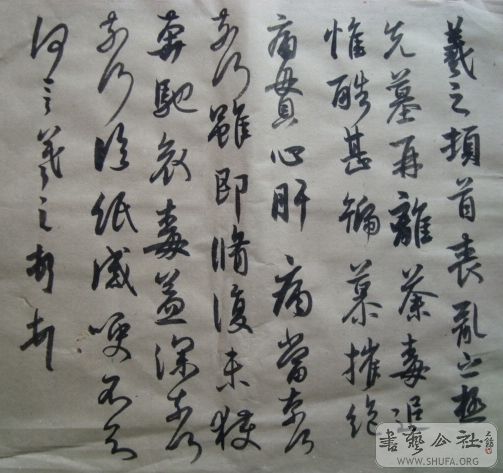 羲之頓首喪亂之極
先墓再離荼毒追
惟酷甚號慕摧絕
痛貫心肝痛當奈何
奈何雖即脩復未獲
奔馳哀毒益深奈何
奈何臨紙感哽不知
何言羲之頓首頓首
書藝公社
WWW.SHUFA.ORG